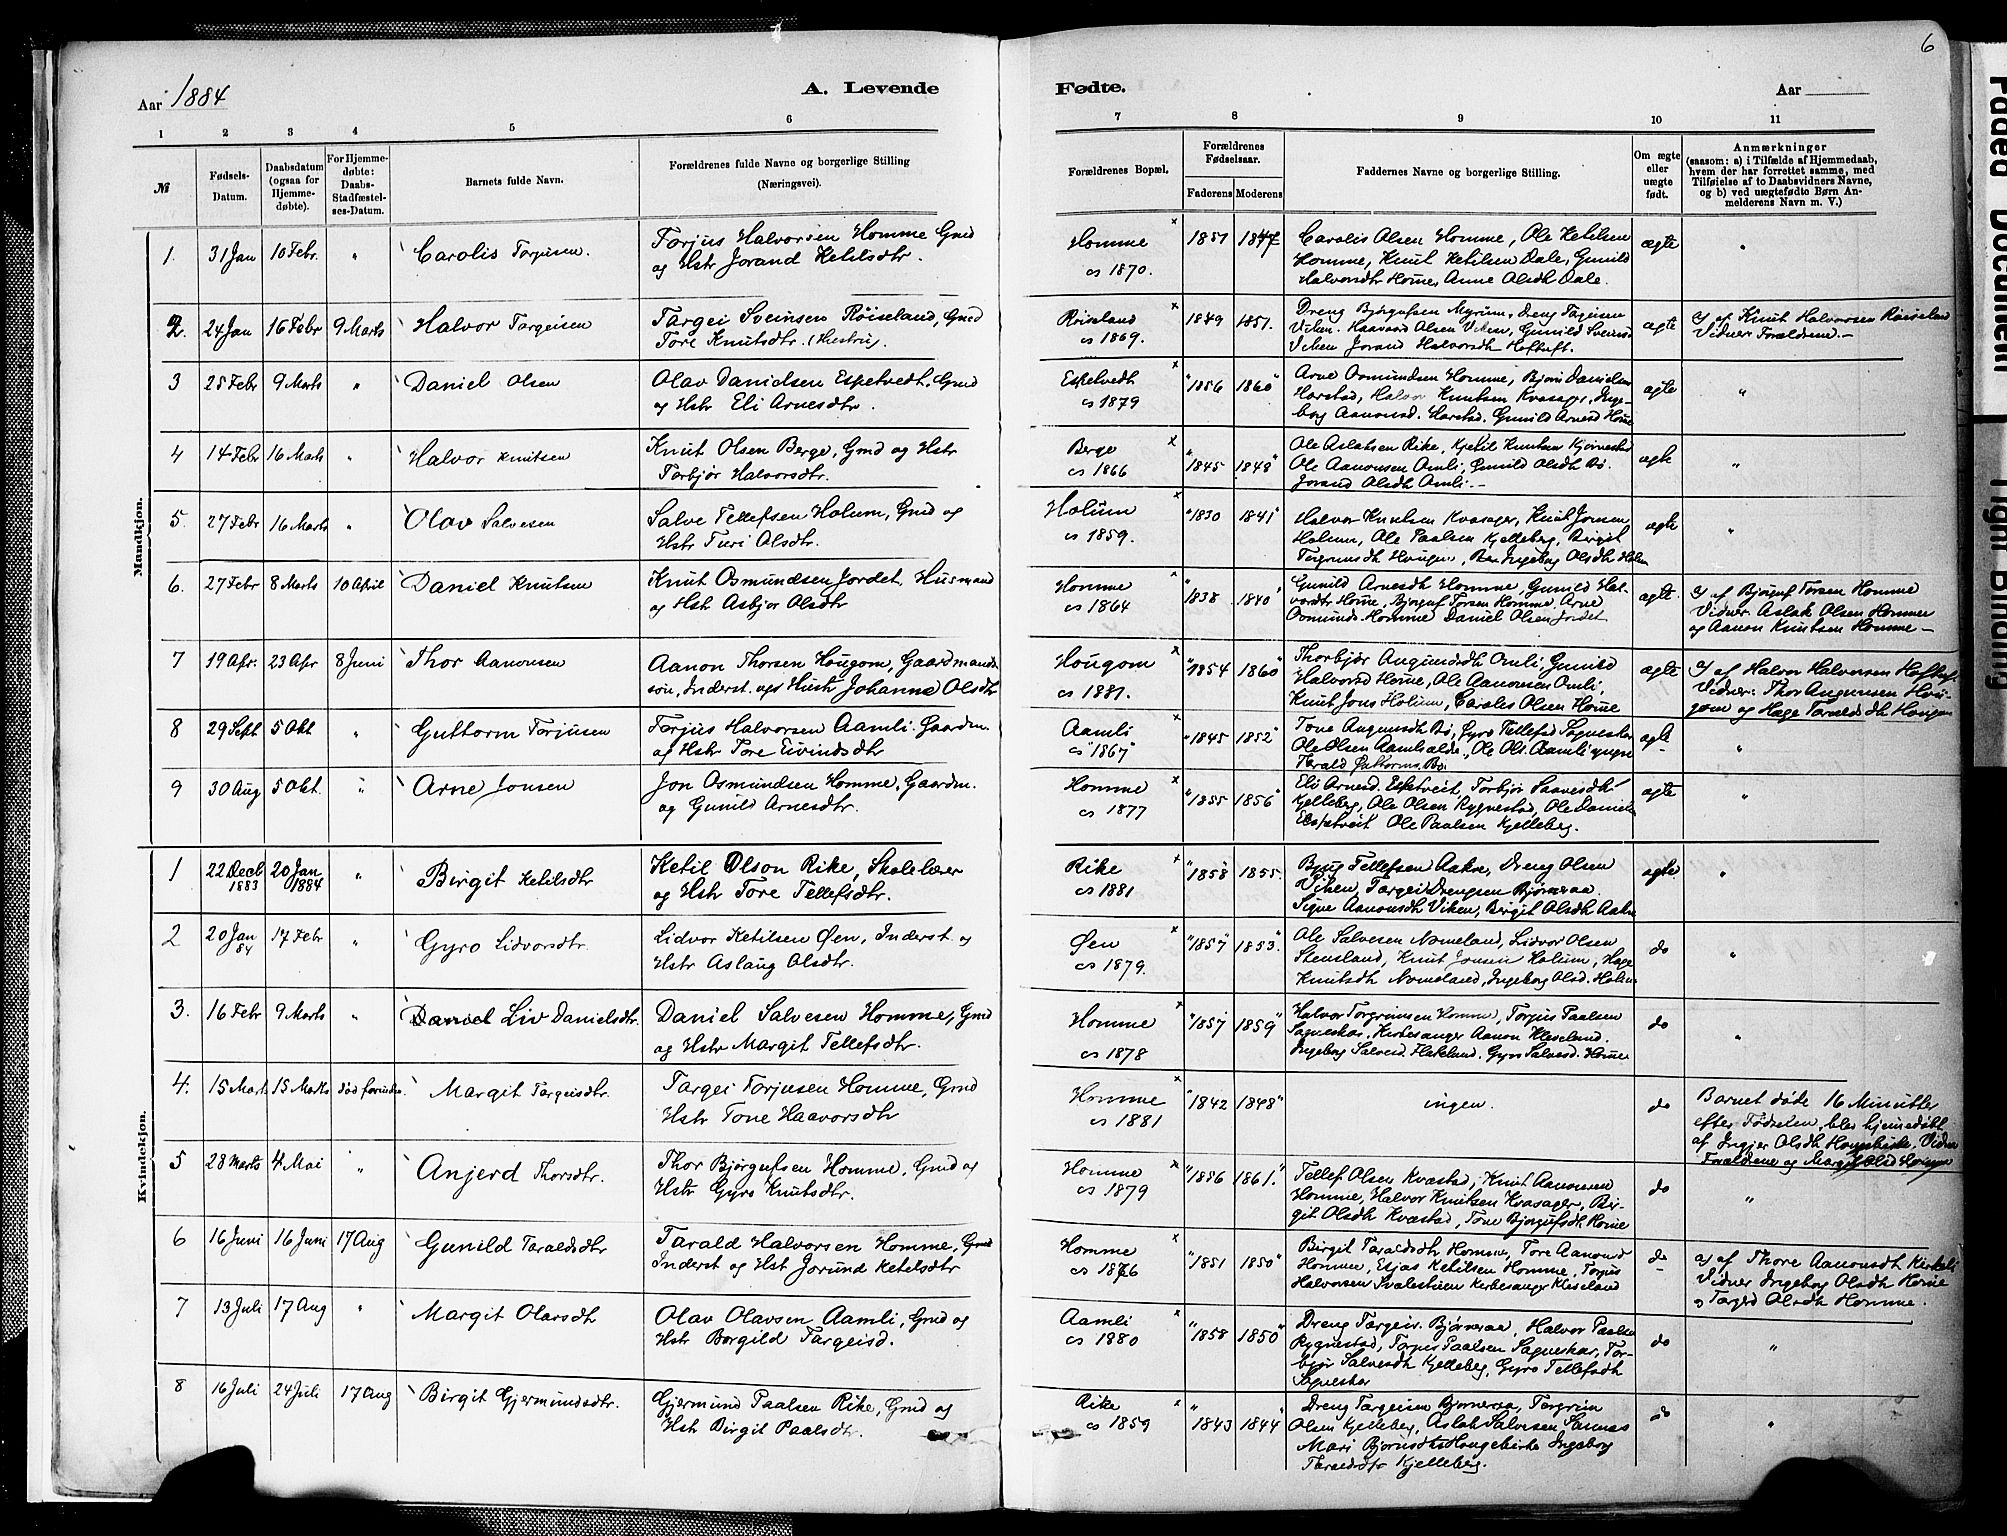 6
Aar 1884
A. Levende
Fødte.
Aar
1 2 3 4 5 6 7 8 9 10 11
№
Fødsels-Datum.
Daabsdatum (ogsaa for Hjemme-døbte).
For Hjemme-døbte: Daabs-Stadfæstel-ses-Datum.
Barnets fulde Navn.
Forældrenes fulde Navne og borgerlige Stilling (Næringsvei).
Forældrenes Bopæl.
Forældrenes Fødselsaar.
Faderens Moderens
Faddernes Navne og borgerlige Stilling.
Om ægte eller uægte født.
Anmærkninger
(saasom: a) i Tilfælde af Hjemmedaab, hvem der har forrettet samme, med Tilføielse af to Daabsvidners Navne, og b) ved uægtefødte Børn An-melderens Navn m. V.)
Mandkjøn.
1. 31 Jan 10 Febr. " Carolis Torjusen.
Torjus Halvorsen Homme Gmd
og Hstr Jorand Ketilsdtr.
Homme
cs 1870.
1851 1847
Carolis Olsen Homme, Ole Ketilsen
Homme, Knut Ketilsen Dale, Gunild
Halvorsdt Home, Anne Olsdt Dale.
ægte "
2. 24 Jan 16 Febr 9 Marts Halvor Targeisen
Targei Sveinsen Røiseland, Gmd
Tore Knutsdtr. (Hustru).
Røiseland
cs 1869.
1849 1851.
Dreng Bjøgufsen Myrum, Dreng Targeisen
Viken. Haavard Olsen Viken, Gunild Sveinsd
Viken Jorand Halvorsdh Hoftuft.
ægte
a) af Knut Halvorsen Røiseland
Vidner: Forældrene.—
3 25 Febr 9 Marts " Daniel Olsen
Olav Danielsen Espetvedt, Gmd
og Hstr Eli Arnesdtr.
Espetvedt
cs 1879
1856 1860
Arne Osmundsen Homme, Bjørn Danielsen
Harstad, Halvor Knutsen Kvasager, Inge-
borg Aanonsd. Harstad. Gunild Arnesd Home
ægte "
4 14 Febr 16 Marts " Halvor Knutsen
Knut Olsen Berge, Gmd og Hstr
Torbjør Halvorsdtr.
Berge
cs 1866
1845 1848
Ole Aslaksen Rike, Kjetil Knutsen Kjørnestad
Ole Aanonsen Omli, Gunild Olsdh Bø.
Jorand Olsdh Omli.—
ægte "
5. 27 Febr 16 Marts " Olav Salvesen
Salve Tellefsen Holum, Gmd og
Hstr Turi Olsdtr.
Holum
cs 1859.
1830 1841
Halvor Knutsen Kvasager, Knut Jonsen
Holum, Ole Paalsen Kjelleberg, Birgit
Torgrimsdh Hougen, Ingeborg Olsdh Holum
ægte "
6. 27 Febr 8 Marts 10 April Daniel Knutsen
Knut Osmundsen Jordet Husmand
og Hstr Asbjør Olsdtr
Homme
cs 1864
1838 1840
Gunild Arnesdh Homme, Gunild Hal-
vorsdtr Home, Bjørguf Torsen Homme, Arne
Osmunds. Homme Daniel Olsen Jordet
ægte.
a) af Bjørguf Torsen Homme
Vidner: Aslak Olsen Homme
og Aanon Knutsen Homme—
7 19 Apr. 23 Apr 8 Juni Thor Aanonsen
Aanon Thorsen Hougom, Gaardmands
søn, Inderst. og Hustr Johanne Olsdtr
Hougom
cs 1881.
1854 1860
Thorbjør Augundsdh Omli, Gunild
Halvorsd Home, Ole Aanonsen Omli,
Knut Jons Holum, Carolis Olsen Home
ægte
a) af Halvor Halvorsen Hoftuf.
Vidner: Thor Augunsen Hou-
gom og Hage Taraldsdh Hougom
8 29 Sept 5 Okt " Guttorm Torjusen
Torjus Halvorsen Aamli. Gaardm.
og Hstr Tore Eivindsdtr
Aamli
cs 1867
1845 1852
Tone Augunsdh Bø, Gyro Tellefsd Sagneskar
Ole Olsen Aamhalde, Ole Ols. Aamli yngre
Tarald Guttorms. Bø.
ægte "
9 30 Aug 5 Okt. " Arne Jonsen
Jon Osmundsen Homme, Gaardm.
og Gunild Arnesdtr.
Homme
cs 1877
1855 1856
Eli Arnesd. Espetveit, Torbjør Saavesdh
Kjelleberg, Ole Olsen Rygnestad, Ole Daniels
Espetveit Ole Paalsen Kjelleberg.
ægte "
Kvindekjøn.
1 22 Decb 1883 20 Jan 1884 " Birgit Ketilsdtr
Ketil Olson Rike, Skolelærer
og Hstr Tore Tellefsdtr.
Rike
cs 1881
1858 1855.
Bjug Tellefsen Aakre, Dreng Olsen
Viken, Targei Drengsen Bjørnaraa.
Signe Aanonsdh Viken, Birgit Olsdh Aakre
ægte "
2 20 Jan 84 17 Febr " Gyro Lidvorsdtr.
Lidvor Ketilsen Øen, Inderst og
Hstr Aslaug Olsdtr.
Øen
cs 1879.
1857 1853.
Ole Salvesen Nomeland, Lidvor Olsen
Stensland, Knut Jonsen Holum, Hage
Knutsdh Nomeland, Ingeborg Olsd. Holum
do "
3. 16 Febr 9 Marts " Daniel Liv Danielsdtr.
Daniel Salvesen Homme, Gmd
og Hstr Margit Tellefsdtr.
Homme
cs 1878
1857 1859
Halvor Torgrimsen Homme, Torjus Paalsen
Sagneskar. Kirkesanger Aanon Kleseland.
Ingeborg Salvesd Flateland. Gyro Salvesd. Home
do "
4. 15 Mart. 15 Marts død forinden. Margit Targeisdtr.
Targei Torjusen Homme, Gmd
Hstr Tone Haavorsdtr
Homme
cs 1881
1842 1848
ingen.
do
Barnet døde 16 Minutter
efter Fødselen, blev hjemedøbt
af Ingjer Olsdh Hougebirke. Vidner
Forældrene og Margit Olsd Homme
5 28 Marts 4 Mai " Anjerd Thorsdtr.
Thor Bjørgufsen Homme, Gmd og
Hstr Gyro Knutsdtr.
Homme
cs 1879
1856 1861.
Tellef Olsen Kvæstad, Knut Aanonsen
Homme, Halvor Knutsen Kvasager, Bir-
git Olsdh Kvæstad, Tone Bjørgufsdh Home
do "
6 16 Juni 16 Juni 17 Aug Gunild Taraldsdtr
Tarald Halvorsen Homme, Gmd
Inderst og Hst Jorund Ketilsdtr
Homme
cs 1876
1851 1850
Birgit Taraldsdh Homme, Tore Aanonsd
Homme, Eljas Ketilsen Homme, Torjus
Halvorsen Svalestuen Kirkesanger Kleseland
do
a) af Thore Aanonsdt
Vidner Ingeborg Olsdh Home
og Targerd Olsdh Homme.
7 13 Juli 17 Aug " Margit Olavsdtr
Olav Olavsen Aamli, Gmd og
Hstr Borgild Targeisd.
Aamli
cs 1880
1858 1850
Dreng Targeis. Bjørneraa, Halvor Paalsen
Rygnestad, Torjus Paalsen Sagneskar, Tor-
bjør Salvesdh Kjelleberg, Gyro Tellefsdh
Sagneskar
do "
8 16 Juli 24 Juli 17 Aug Birgit Gjermundsdtr.
Gjermund Paalsen Rike, Gmd og
Hstr Birgit Paalsdtr.
Rike
cs 1859
1843 1844
Dreng Targeisen Bjørneraa, Torgrim
Olsen Kjelleberg, Aslak Salvesen Sannes
Mari Bjørnsdt Hougebirke Ingeborg
Taraldsdtr Kjelleberg.
do "